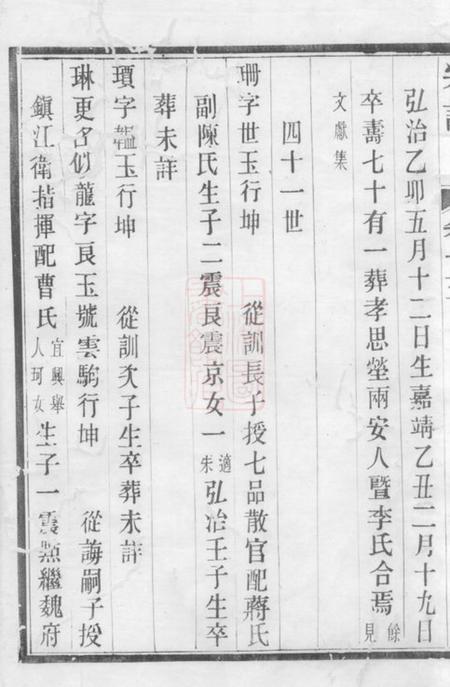 弘治乙卯五月十二日生嘉靖乙丑二月十九日
卒壽七十有一葬孝思塋兩安人暨李氏合焉餘見
文獻集
四十一世
珊字世玉行坤 從訓長子授七品散官配蔣氏
副陳氏生子二震良震京女一適朱弘治壬子生卒
葬未詳
瓊字韞玉行坤 從訓次子生卒葬未詳
琳更名似龍字良玉號雲駒行坤 從誨嗣子授
鎮江衛指揮配曹氏宜興舉人珂女生子一震點繼魏府